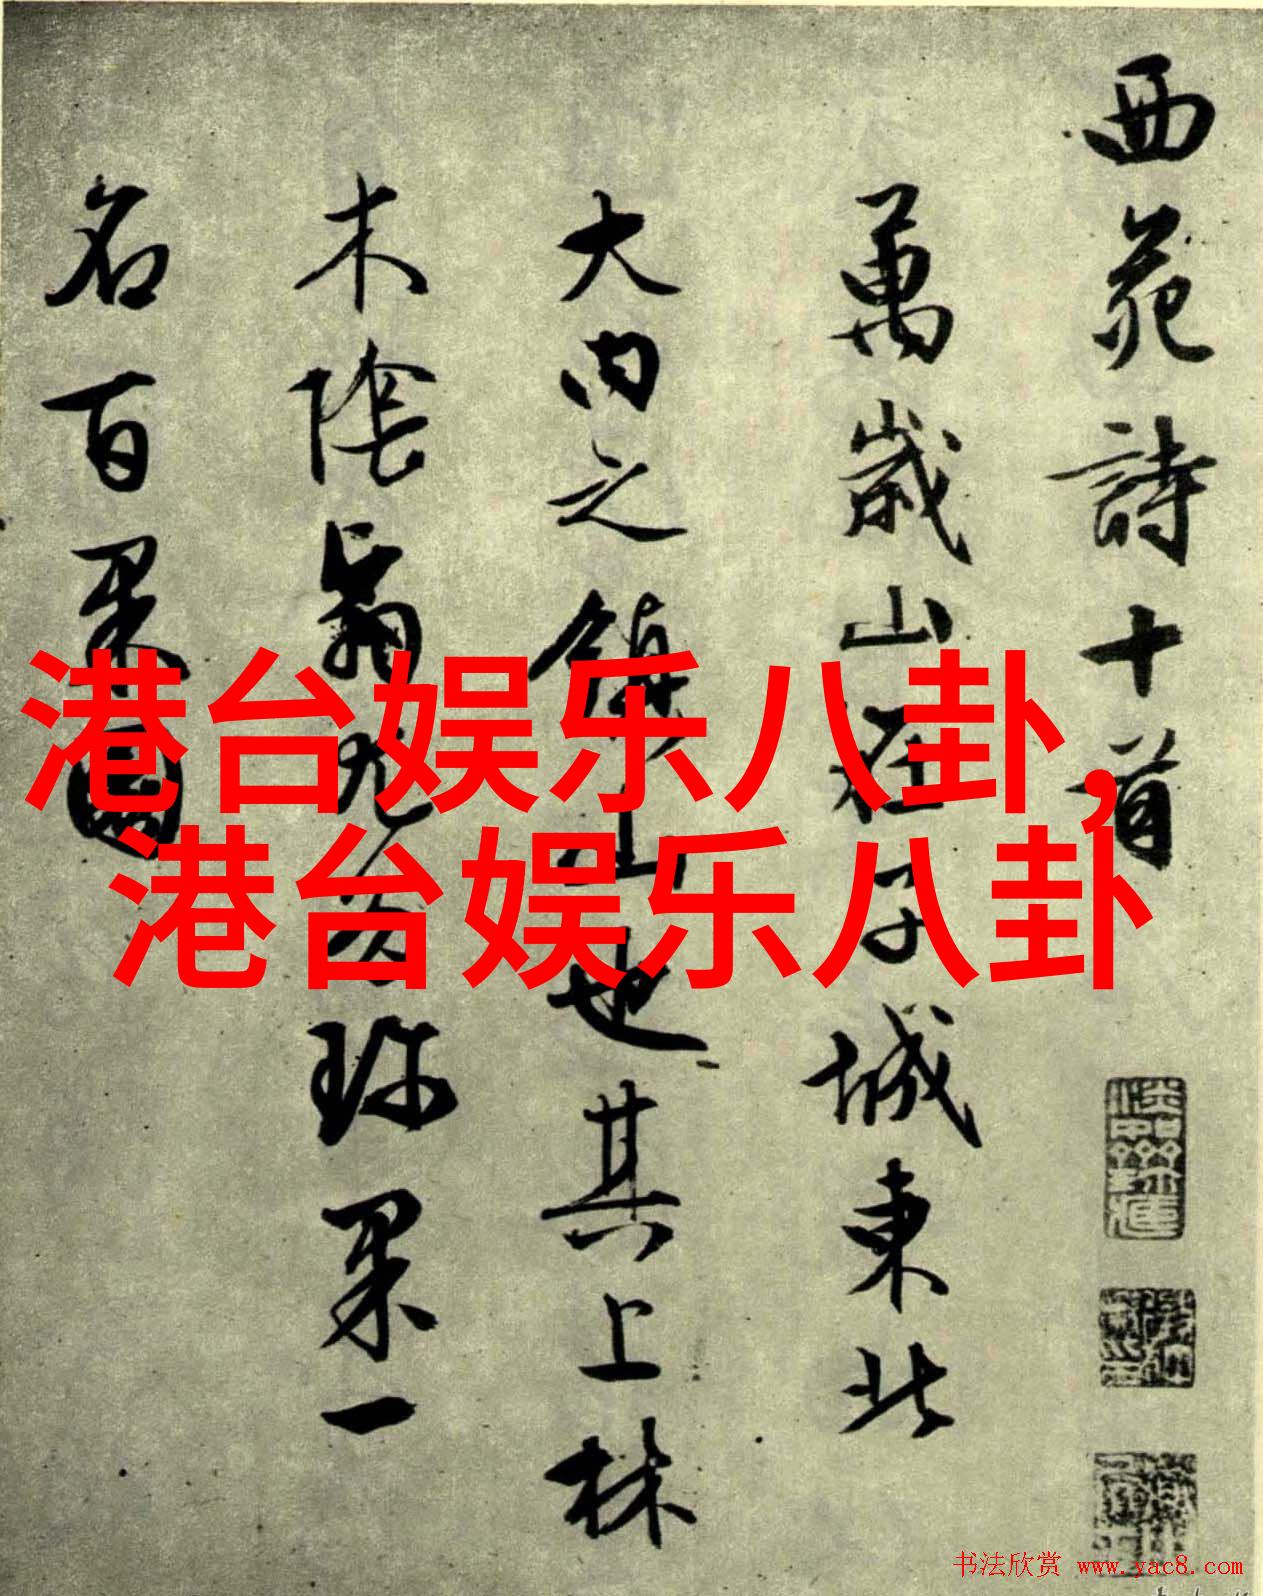 西苑詩十首
萬歲山在子城東北
大内之鎮山也其上林
木陰翳尤多珍果一
名百果園
港台娱乐八卦，
港台娱乐八卦
书法欣赏 www.yac8.com